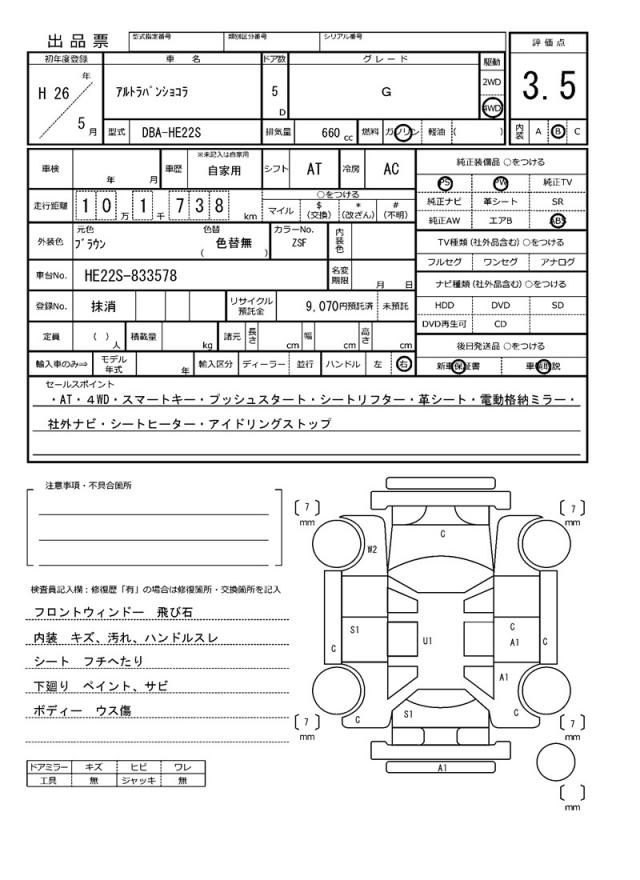 出品票 型式指定番号 類別区分番号 シリアル番号
初年度登録 車名 ドア数 グレード 駆動 評価点
H 26 年 5 月 ｱﾙﾄﾗﾊﾟﾝｼｮｺﾗ 5 D G 2WD 4WD 3.5
型式 DBA-HE22S 排気量 660 cc 燃料 ガソリン 軽油 ( ) 内装 A B C
車検 年 月 車歴 ※未記入は自家用 自家用 シフト AT 冷房 AC 純正装備品 ○をつける
PS PW 純正TV
走行距離 1 0 万 1 千 7 3 8 km ○をつける 純正ナビ 革シート SR
マイル $(交換) *(改ざん) #(不明) 純正AW エアB ABS
外装色 元色 ﾌﾞﾗｳﾝ 色替 ( 色替無 ) カラーNo. ZSF 内装色 TV種類 (社外品含む) ○をつける
フルセグ ワンセグ アナログ
車台No. HE22S-833578 名変期限 月 日 ナビ種類 (社外品含む) ○をつける
登録No. 抹消 リサイクル預託金 9,070円預託済 未預託 HDD DVD SD
DVD再生可 CD
定員 ( ) 人 積載量 kg 諸元 長さ cm 幅 cm 高さ cm 後日発送品 ○をつける
輸入車のみ⇒ モデル年式 年 輸入区分 ディーラー 並行 ハンドル 左 右 新車保証書 車輌取説
セールスポイント
・AT・４WD・スマートキー・プッシュスタート・シートリフター・革シート・電動格納ミラー・
社外ナビ・シートヒーター・アイドリングストップ
注意事項・不具合箇所
検査員記入欄：修復歴「有」の場合は修復箇所・交換箇所を記入
フロントウィンドー　飛び石
内装　キズ、汚れ、ハンドルスレ
シート　フチへたり
下廻り　ペイント、サビ
ボディー　ウス傷
ドアミラー キズ ヒビ ワレ
工具 無 ジャッキ 無
〔 7 〕 mm 〔 7 〕 mm
C
W2
S1 U1 C
C A1 C
A1
C S1 C
〔 7 〕 mm 〔 7 〕 mm
A1
〔 〕 mm